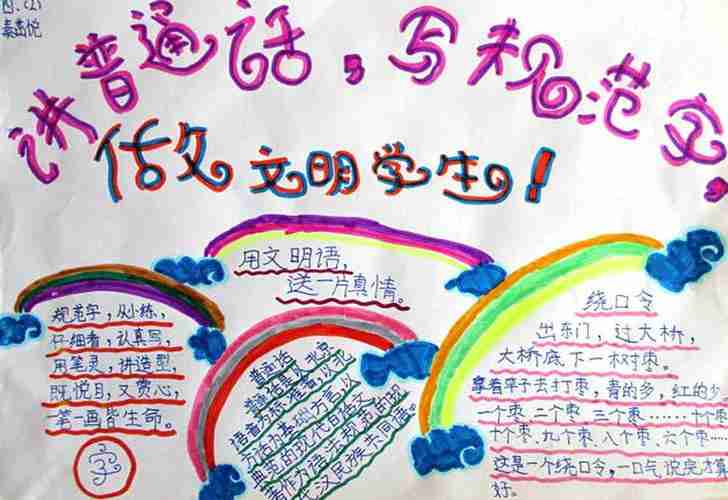 四、(2)
讲普通话，写规范字，
做文明学生！
用文明语，
送一片真情。
规范字，从小练，
仔细看，认真写，
用笔灵，讲造型，
既悦目，又赏心，
笔一画皆生命。
字
普通话
普通话是以北京
语音为标准音，以北
方话为基础方言，以
典范的现代白话文
著作为语法规范的现
代汉民族共同语。
绕口令
出东门，过大桥，
大桥底下一树枣。
拿着竿子去打枣，青的多，红的少
一个枣二个枣 三个枣……十个枣
十个枣、九个枣、八个枣、六个枣……
这是一个绕口令，一口气说完才算
好